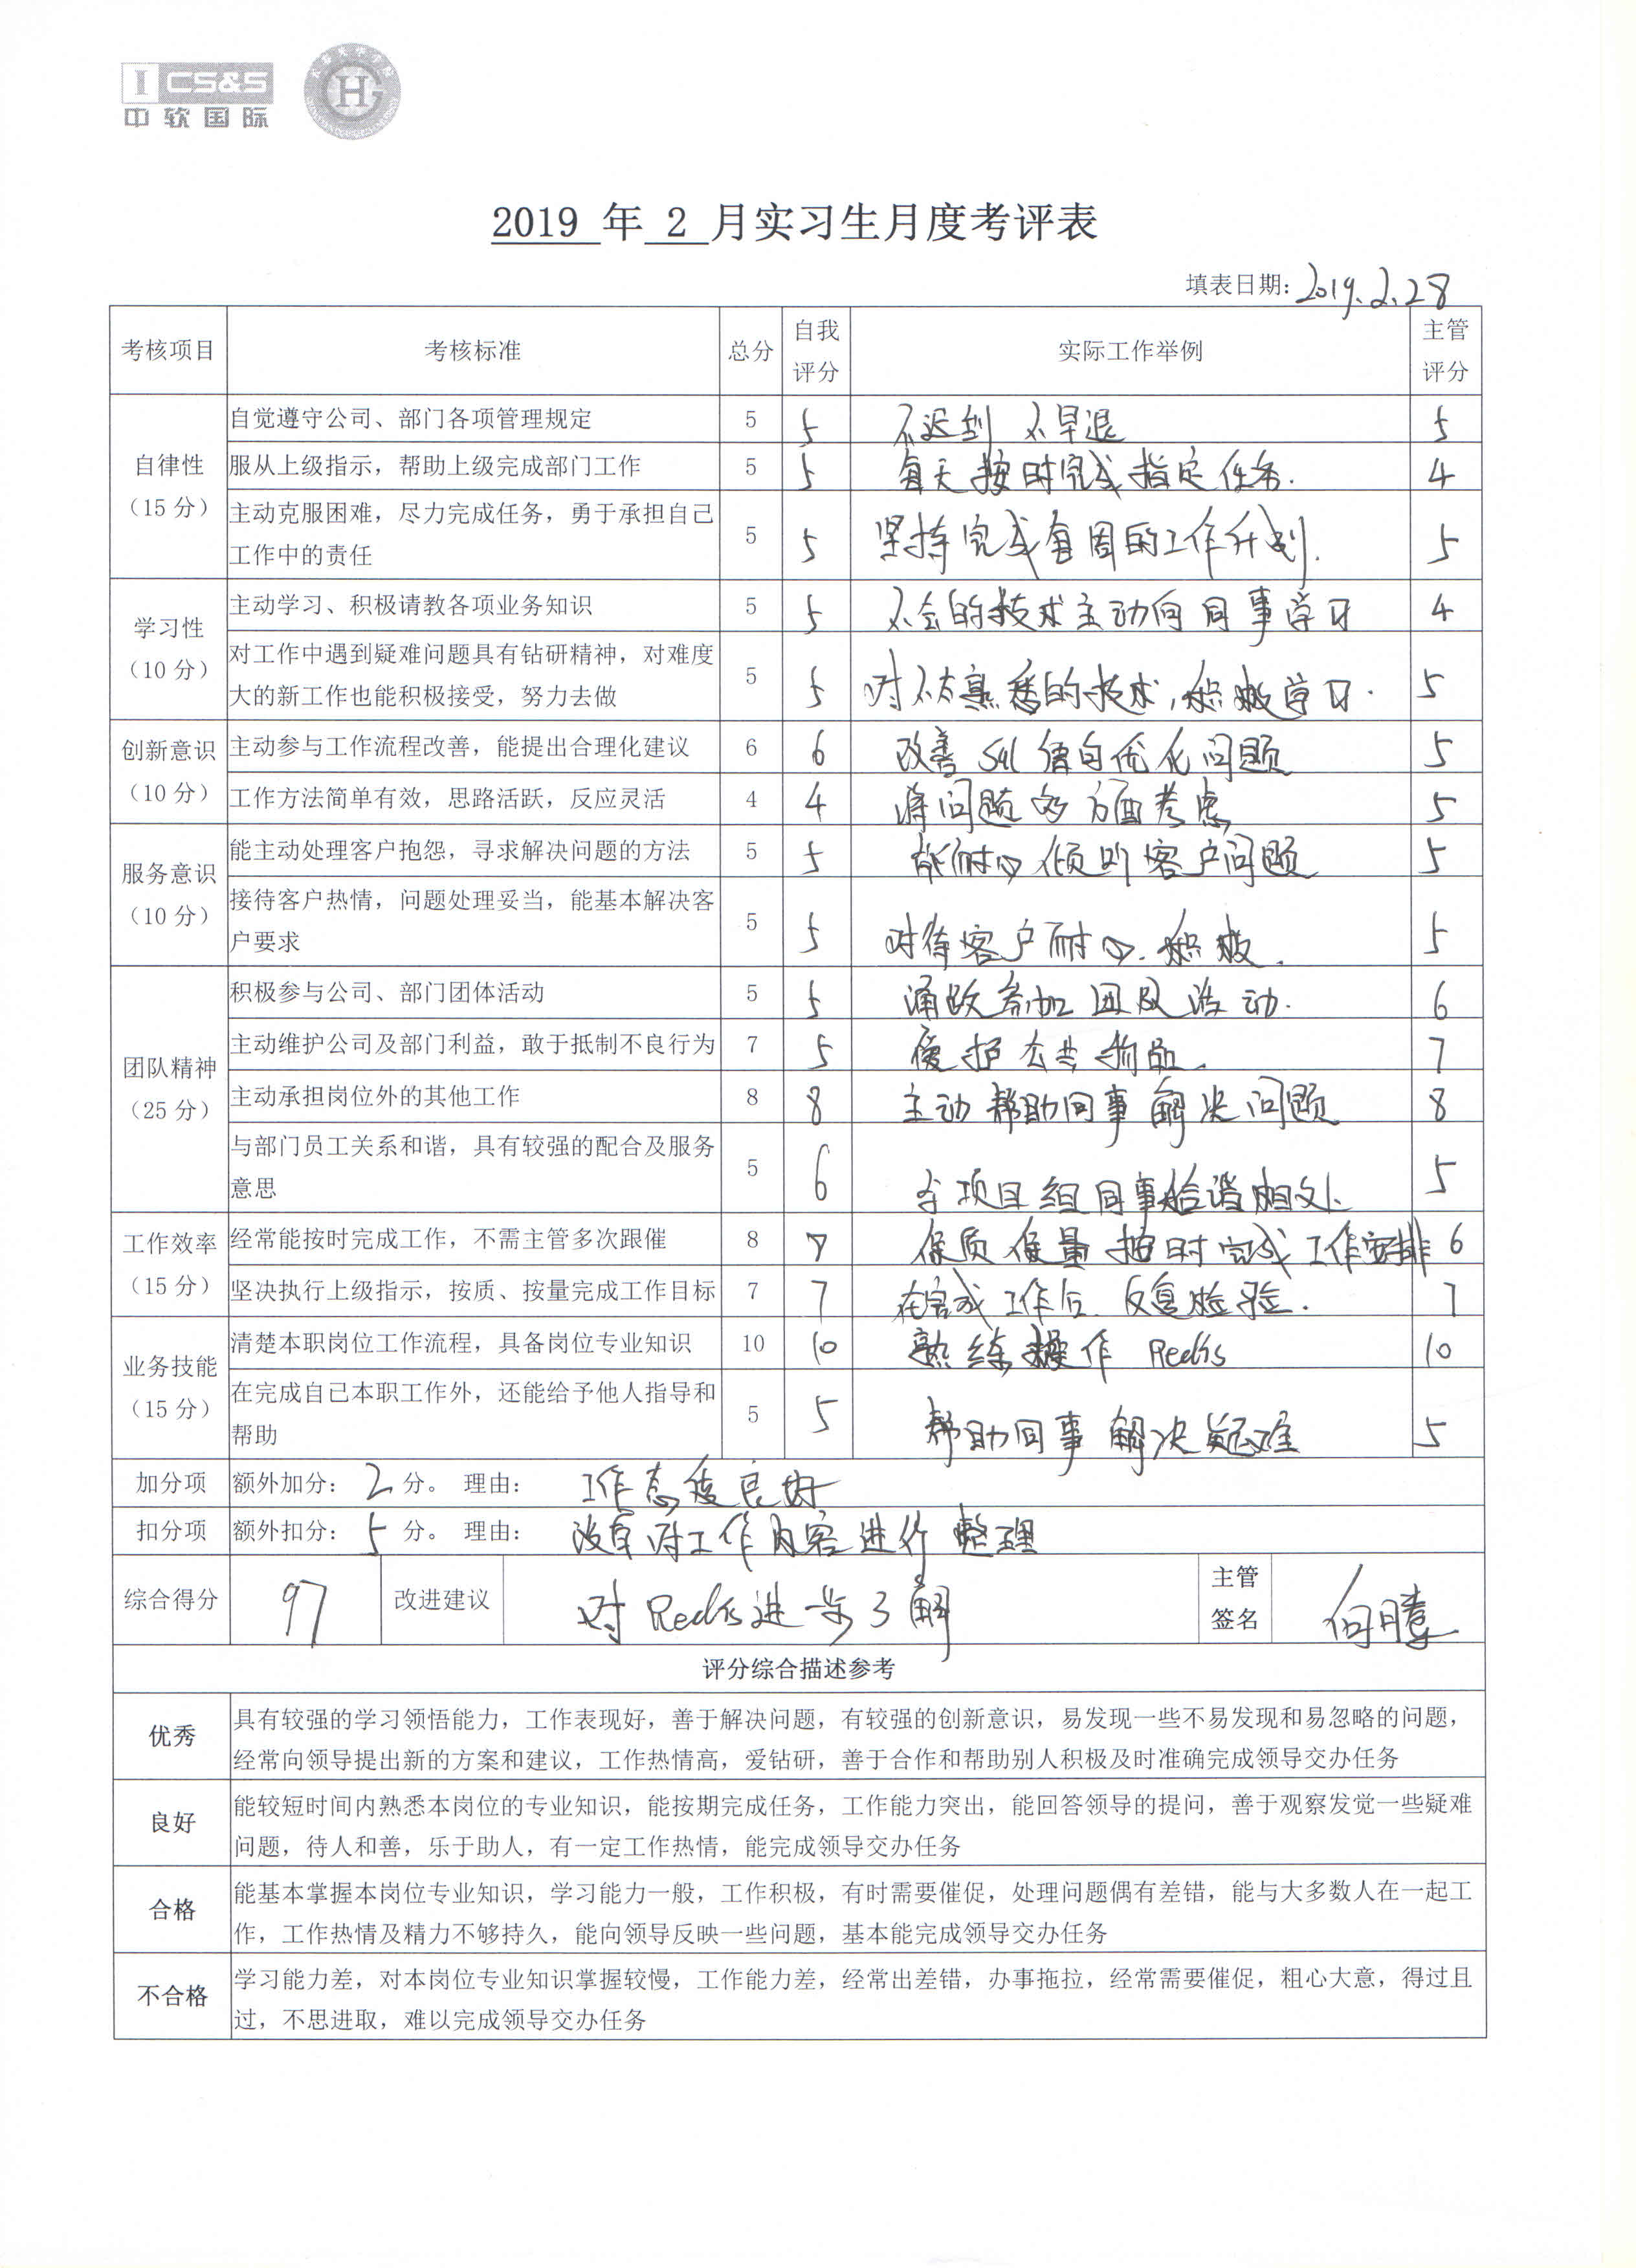 I CS&S
中软国际
H
2019 年 2 月实习生月度考评表
填表日期：2019.2.28
考核项目 考核标准 总分 自我评分 实际工作举例 主管评分
自律性（15 分）
自觉遵守公司、部门各项管理规定 5 5 不迟到 不早退 5
服从上级指示，帮助上级完成部门工作 5 5 每天按时完成指定任务. 4
主动克服困难，尽力完成任务，勇于承担自己
工作中的责任 5 5 坚持完成每周的工作计划. 5
学习性（10 分）
主动学习、积极请教各项业务知识 5 5 不会的技术主动向同事学习 4
对工作中遇到疑难问题具有钻研精神，对难度
大的新工作也能积极接受，努力去做 5 5 对不太熟悉的技术，积极学习. 5
创新意识（10 分）
主动参与工作流程改善，能提出合理化建议 6 6 改善 Sql 优化问题 5
工作方法简单有效，思路活跃，反应灵活 4 4 将问题多方面考虑 5
服务意识（10 分）
能主动处理客户抱怨，寻求解决问题的方法 5 5 能耐心倾听客户问题 5
接待客户热情，问题处理妥当，能基本解决客
户要求 5 5 对待客户耐心.积极. 5
团队精神（25 分）
积极参与公司、部门团体活动 5 5 参加团队活动. 6
主动维护公司及部门利益，敢于抵制不良行为 7 5 爱护公共物品. 7
主动承担岗位外的其他工作 8 8 主动帮助同事解决问题 8
与部门员工关系和谐，具有较强的配合及服务
意思 5 6 与项目组同事和谐相处 5
工作效率（15 分）
经常能按时完成工作，不需主管多次跟催 8 7 保质保量按时完成工作安排 6
坚决执行上级指示，按质、按量完成工作目标 7 7 在完成工作后.反复检验. 7
业务技能（15 分）
清楚本职岗位工作流程，具备岗位专业知识 10 10 熟练操作 Redis 10
在完成自己本职工作外，还能给予他人指导和
帮助 5 5 帮助同事解决疑难 5
加分项 额外加分： 2 分。 理由： 工作态度良好
扣分项 额外扣分： 5 分。 理由： 没有对工作内容进行整理
综合得分 97 改进建议 对 Redis进一步了解 主管签名 向腾
评分综合描述参考
优秀
具有较强的学习领悟能力，工作表现好，善于解决问题，有较强的创新意识，易发现一些不易发现和易忽略的问题，
经常向领导提出新的方案和建议，工作热情高，爱钻研，善于合作和帮助别人积极及时准确完成领导交办任务
良好
能较短时间内熟悉本岗位的专业知识，能按期完成任务，工作能力突出，能回答领导的提问，善于观察发觉一些疑难
问题，待人和善，乐于助人，有一定工作热情，能完成领导交办任务
合格
能基本掌握本岗位专业知识，学习能力一般，工作积极，有时需要催促，处理问题偶有差错，能与大多数人在一起工
作，工作热情及精力不够持久，能向领导反映一些问题，基本能完成领导交办任务
不合格
学习能力差，对本岗位专业知识掌握较慢，工作能力差，经常出差错，办事拖拉，经常需要催促，粗心大意，得过且
过，不思进取，难以完成领导交办任务